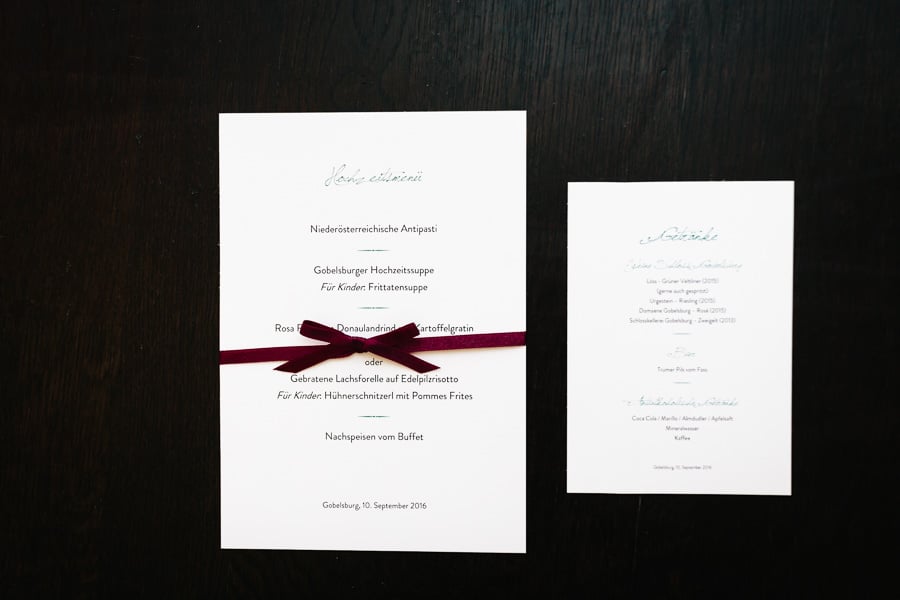 Hochzeitsmenü
Niederösterreichische Antipasti
Gobelsburger Hochzeitssuppe
Für Kinder: Frittatensuppe
Rosa Donaulandrind Kartoffelgratin
oder
Gebratene Lachsforelle auf Edelpilzrisotto
Für Kinder: Hühnerschnitzerl mit Pommes Frites
Nachspeisen vom Buffet
Gobelsburg, 10. September 2016
Getränke
Schloss Gobelsburg
Löss - Grüner Veltliner (2015)
(gerne auch gespritzt)
Urgestein - Riesling (2015)
Domaene Gobelsburg - Rosé (2015)
Schlosskellerei Gobelsburg - Zweigelt (2013)
Bier
Trumer Pils vom Fass
Antialkoholische Getränke
Coca Cola / Marillo / Almdudler / Apfelsaft
Mineralwasser
Kaffee
Gobelsburg, 10. September 2016